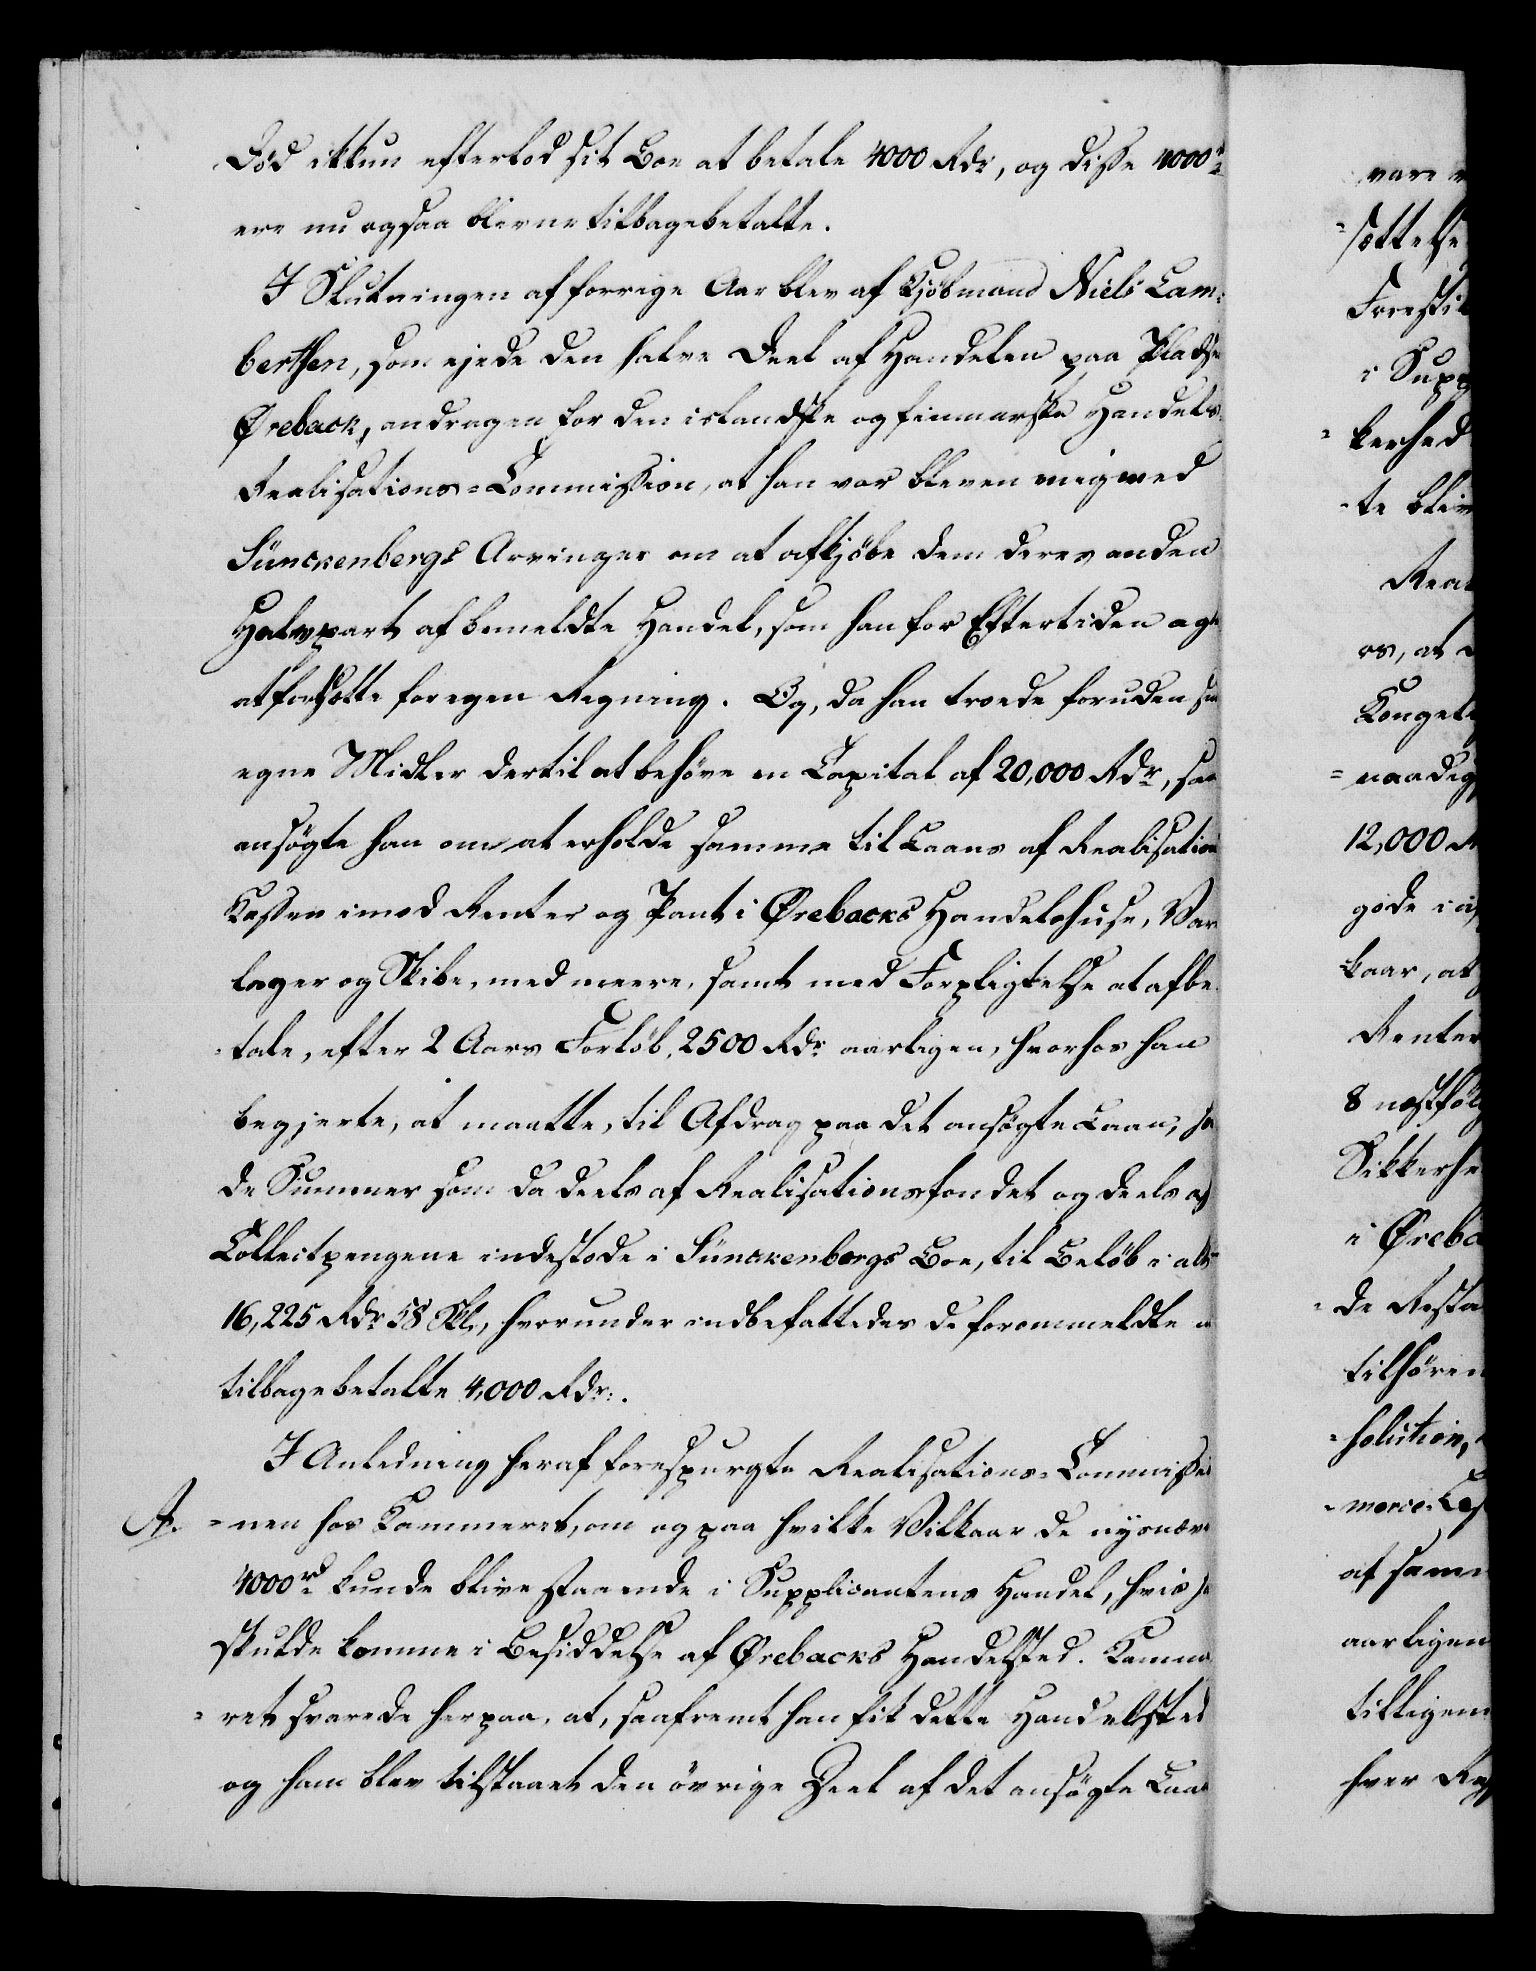 Død ikkun efterlod sit Boe at betale 4000 Rdr, og disse 4000 rd
ere nu ogsaa blevne tilbagebetalte.
I Slutningen af forrige Aar blev af Kjöbmand Niels Lam-
bertsen, som ejede den halve Deel af Handelen paa Pladsen
Öreback, andragen for den islandske og finmarske Handels-
Realisations-Commission, at han var bleven enig med
Sünckenbergs Arvinger om at afkjöbe dem deres anden
Halvpart af bemeldte Handel, som han for Eftertiden agte
at fortsætte for egen Regning. Og, da han troede foruden sin
egne Midler dertil at behöve en Capital af 20,000 Rdr, saa
ansögte han om at erholde samme til Laans af Realisation
Kassen imod Renter og Pant i Örebacks Handelshuse, Vare
lager og Skibe, med meere, samt med Forpligtelse at afbe-
-tale, efter 2 Aars Forlöb, 2500 Rdr aarligen, hvorhos han
begjerte, at maatte, til Afdrag paa det ansögte Laan,
de Summer som da deels af Realisationsfondet og deels af
Collectpengene indestode i Sünckenbergs Boe, til Belöb i alt
16,225 Rdr 58 Skl, hvorunder indbefattedes de forommeldte
tilbagebetalte 4,000 Rdr.
I Anledning heraf forespurgte Realisations-Commissio
A. -nen hos Kammeret, om og paa hvilke Vilkaar de nysnævn
4000 rd kunde blive staaende i Supplicantens Handel, hvis
skulde komme i Besiddelse af Örebacks Handelsted. Kamme
-ret svarede herpaa, at, saafremt han fik dette Handelsted
og ham blev tilstaaet den övrige Deel af det ansögte Laan
vare
-sættelse
Forestil
i Supp
-kerhed
-te bliv
Real
os, at
Kongel
-naadig
12,000 R
gode
kaar, at
Renter
8 næstföl
Sikkerhe
i Öreba
-de Resta
tilhören
-solution,
-merce-Co
af samm
aarligen
tilligem
hver